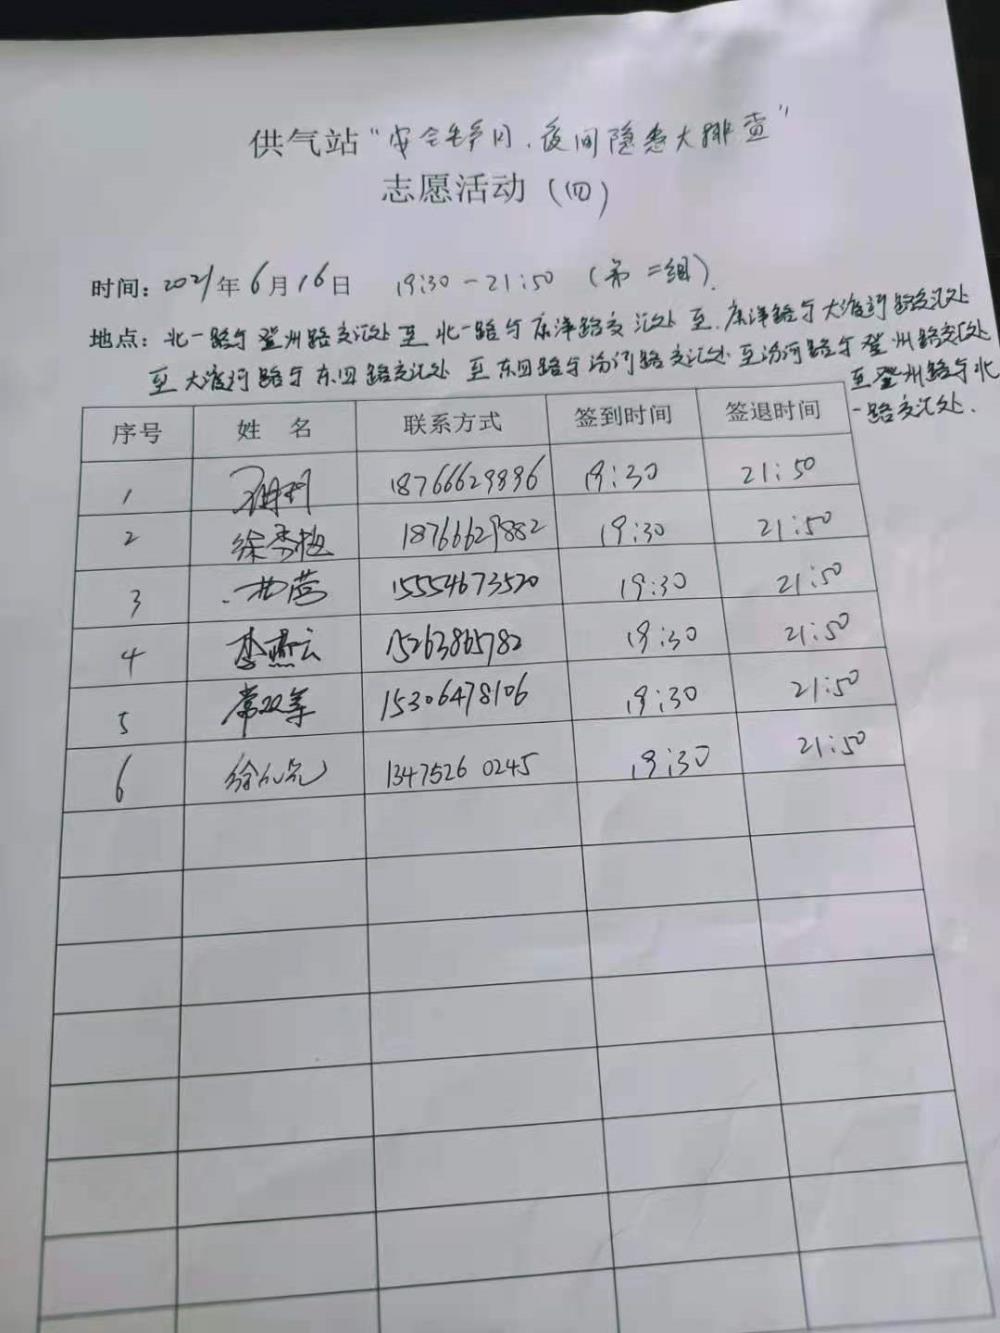 供气站“安全生产月.夜间隐患大排查”
志愿活动(四)
时间:2021年6月16日 19:30-21:50 (第二组).
地点:北一路与登州路交汇处至北一路与东津路交汇处至.东津路与大渡河路交汇处
至大渡河路与东四路交汇处至东四路与汾河路交汇处至汾河路与登州路交汇处
至登州路与北
一路交汇处.
序号 姓名 联系方式 签到时间 签退时间
1 18766629896 19:30 21:50
2 徐秀梅 18766629882 19:30 21:50
3 15554673520 19:30 21:50
4 李燕云 15263865782 19:30 21:50
5 常双军 15306478106 19:30 21:50
6 13475260245 19:30 21:50